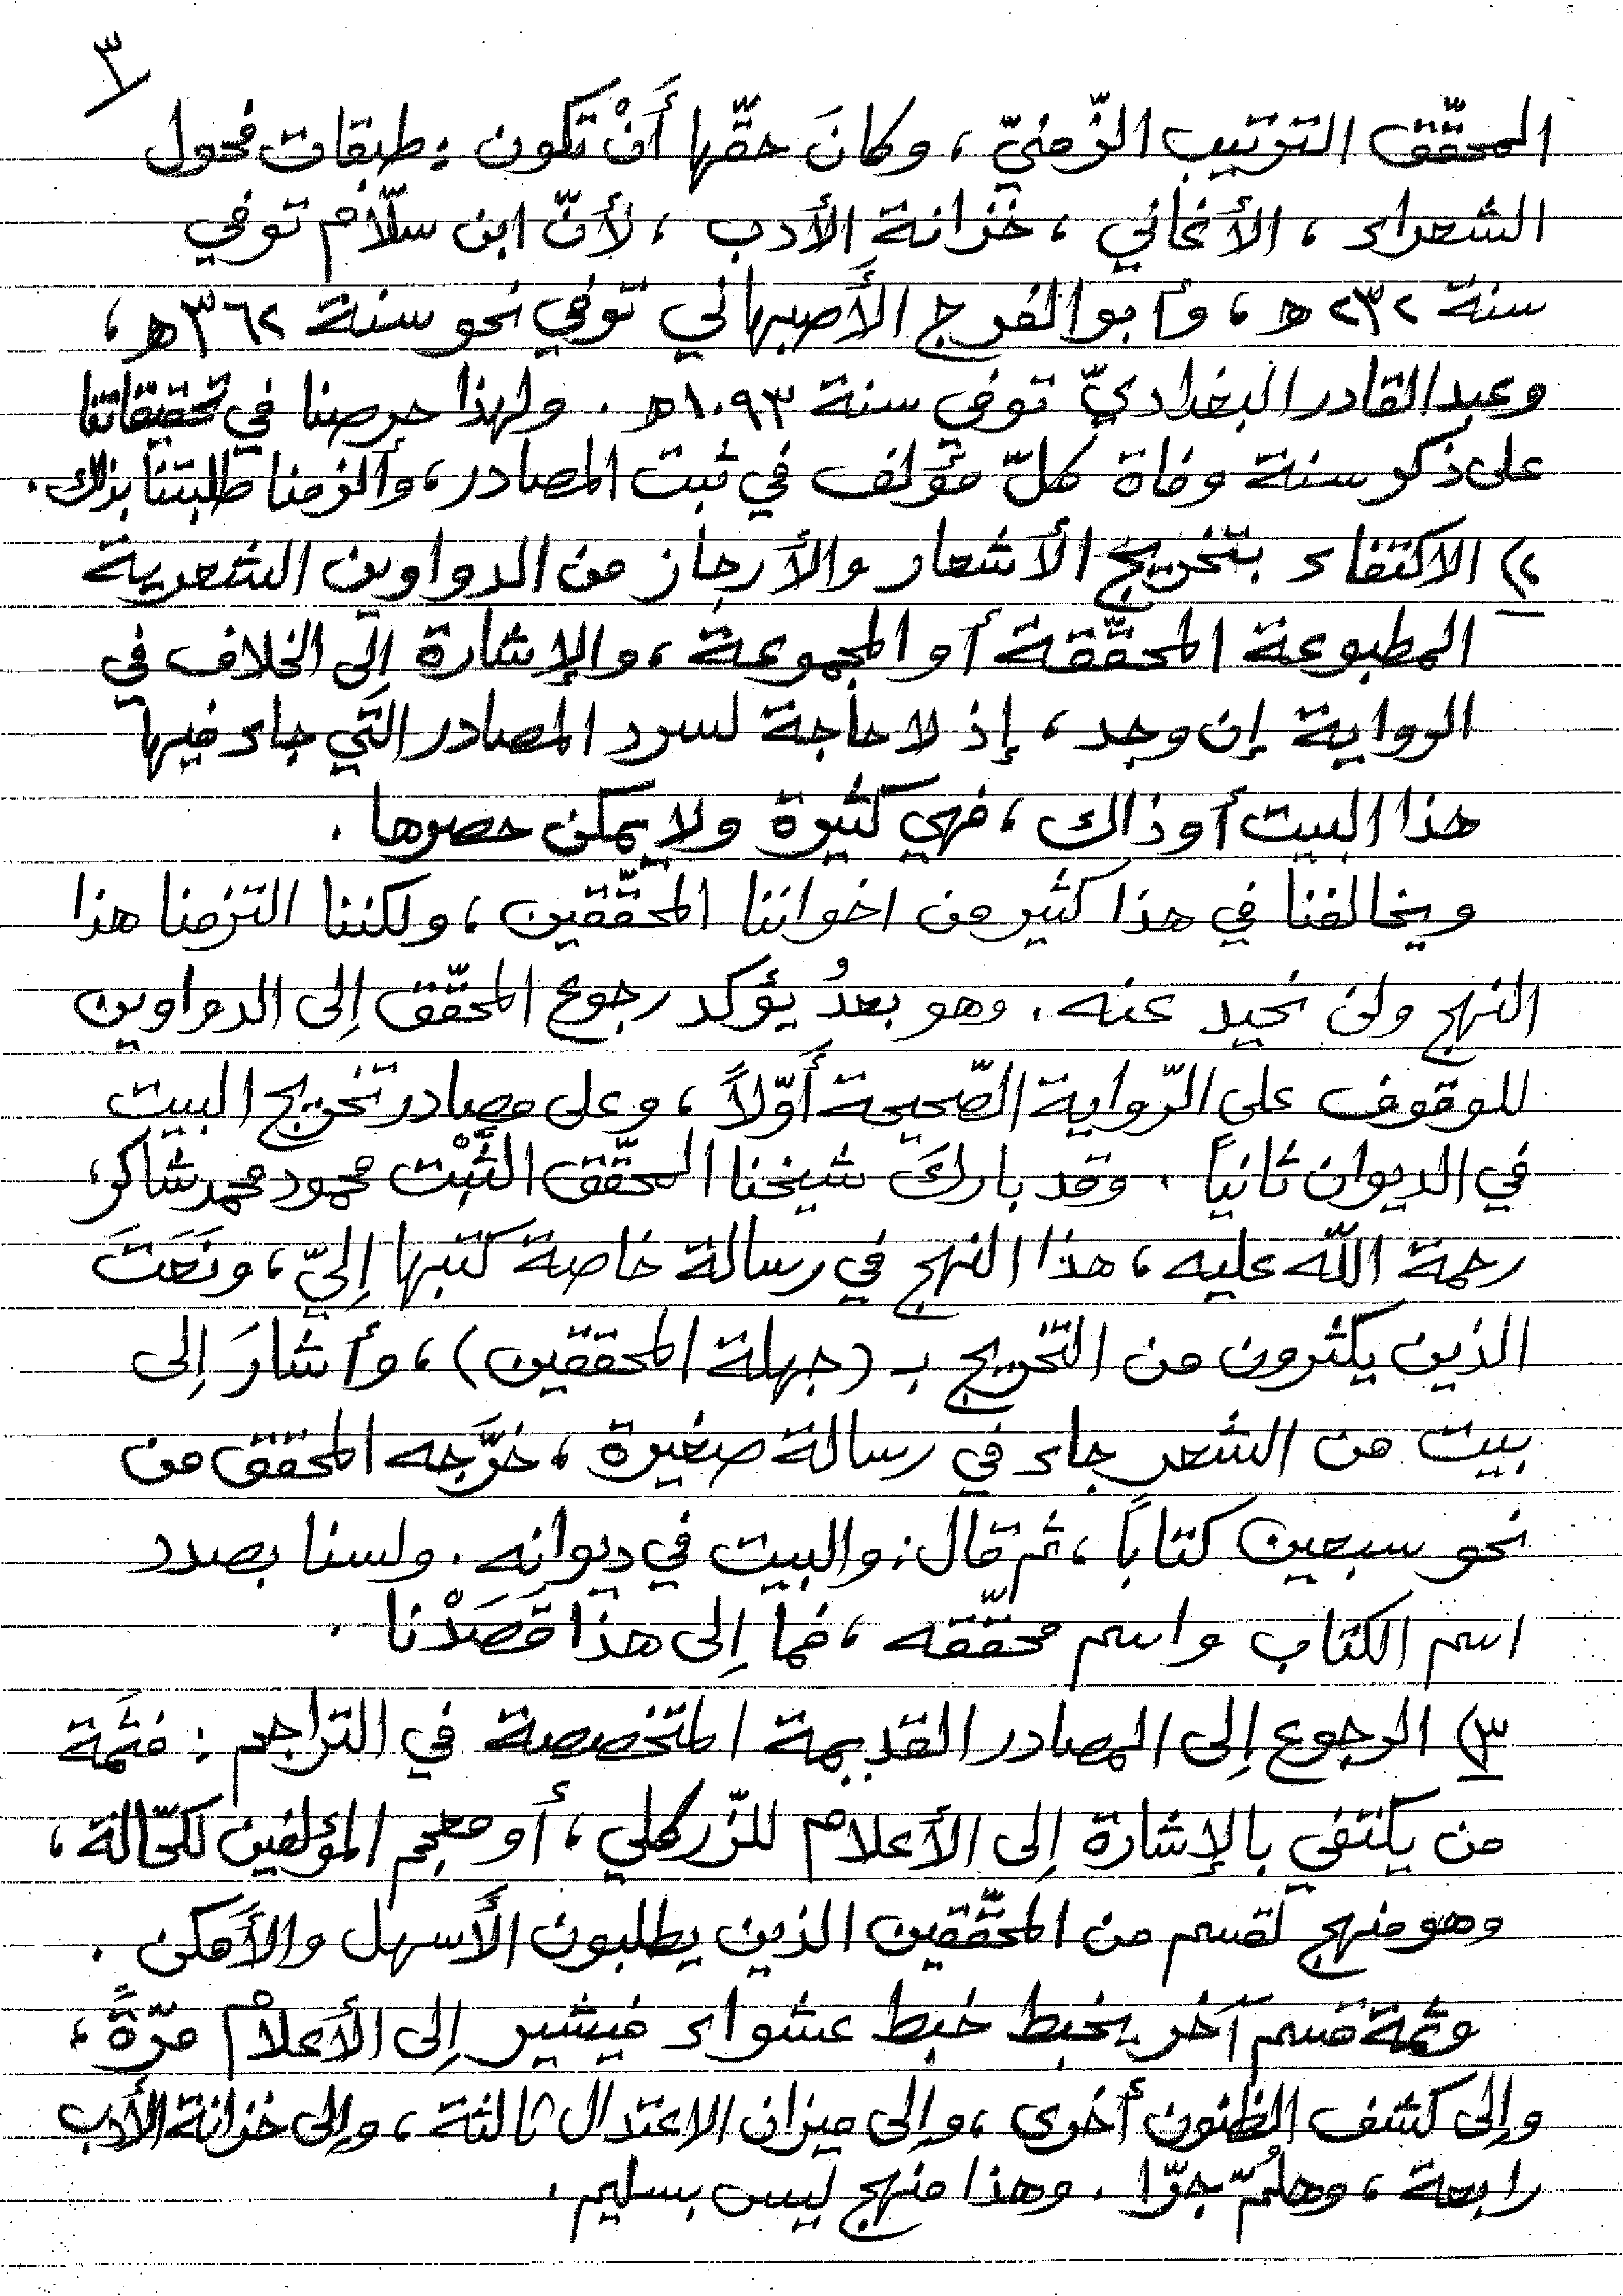 ٣
المحقّق الترتيب الزّمنيّ ، وكانَ حقّها أَنْ تكون : طبقات فحول
الشعراء ، الأغاني ، خزانة الأدب ، لأنّ ابن سلّام توفي
سنة ٢٣٢ ه ، وأبو الفرج الأَصبهاني توفي نحو سنة ٣٦٢ه ،
وعبد القادر البغداديّ توفى سنة ١٠٩٣ه . ولهذا حرصنا في تحقيقاتنا
على ذكر سنة وفاة كلّ مؤلف في ثبت المصادر ، وألزمنا طلبتنا بذلك .
٢) الاكتفاء بتخريج الأشعار والأرجاز من الدواوين الشعرية
المطبوعة المحقّقة أو المجموعة ، والإشارة إلى الخلاف في
الرواية إن وجد ، إذ لا حاجة لسرد المصادر التي جاء فيها
هذا البيت أو ذاك ، فهي كثيرة ولا يمكن حصرها .
ويخالفنا في هذا كثير من اخواننا المحقّقين ، ولكننا التزمنا هذا
النهج ولن نحيد عنه . وهو بعدُ يؤكد رجوع المحقّق إلى الدواوين
للوقوف على الرّواية الصّحيحة أَوّلاً ، وعلى مصادر تخريج البيت
في الديوان ثانياً . وقد باركَ شيخنا المحقّق الثَّبْت محمود محمد شاكر ،
رحمة اللّه عليه ، هذا النهج في رسالة خاصة كتبها إليّ ، ونَعَتَ
الذين يكثرون من التخريج بـ (جهلة المحققين) ، وأشارَ إلى
بيت من الشعر جاء في رسالة صغيرة ، خرَّجه المحقق من
نحو سبعين كتاباً ، ثم قال : والبيت في ديوانِه . ولسنا بصدد
اسم الكتاب واسم محقّقه ، فما إلى هذا قَصَدْنا .
٣) الرجوع إلى المصادر القديمة المتخصصة في التراجم : فثَمة
من يكتفي بالإشارة إلى الأعلام للزّركلي ، أو معجم المؤلفين لكحّالة ،
وهو منهج لقسم من المحقّقين الذين يطلبون الأَسهل والأَمكن .
وثمة قسم آخر يخبط خبط عشواء فيشير إلى الأَعلام مرّةً ،
وإلى كشف الظنون أخرى ، وإلى ميزان الاعتدال ثالثة ، وإلى خزانة الأدب
رابعة ، وهلُمّ جرّا . وهذا منهج ليس بسليم .